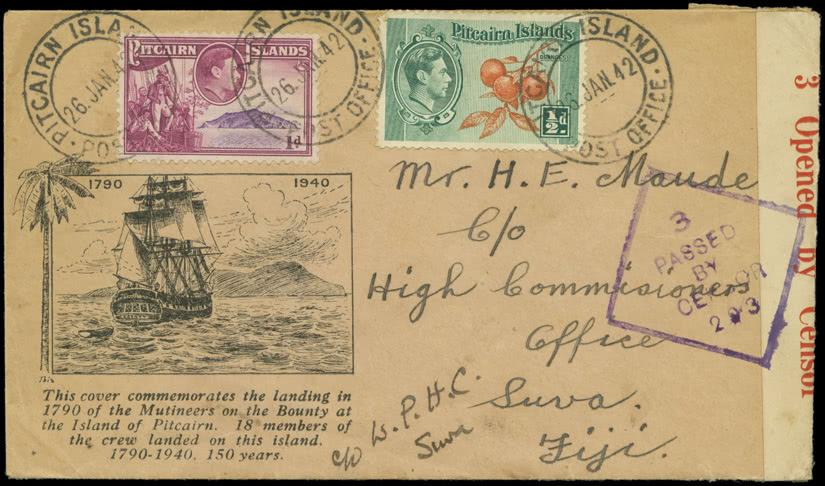 PITCAIRN ISLAND · POST OFFICE
26. JAN. 42
PITCAIRN ISLANDS
1d
PITCAIRN ISLAND · POST OFFICE
26. JAN. 42
Pitcairn Islands
½d
ISLAND · POST OFFICE
26. JAN. 42
3 Opened by Censor
1790 1940
Mr. H. E. Maude
C/o
High Commisioners
Office
Suva.
Fiji.
3
PASSED
BY
CENSOR
293
This cover commemorates the landing in
1790 of the Mutineers on the Bounty at
the Island of Pitcairn. 18 members of
the crew landed on this island.
1790-1940. 150 years.
c/o W.P.H.C.
Suva